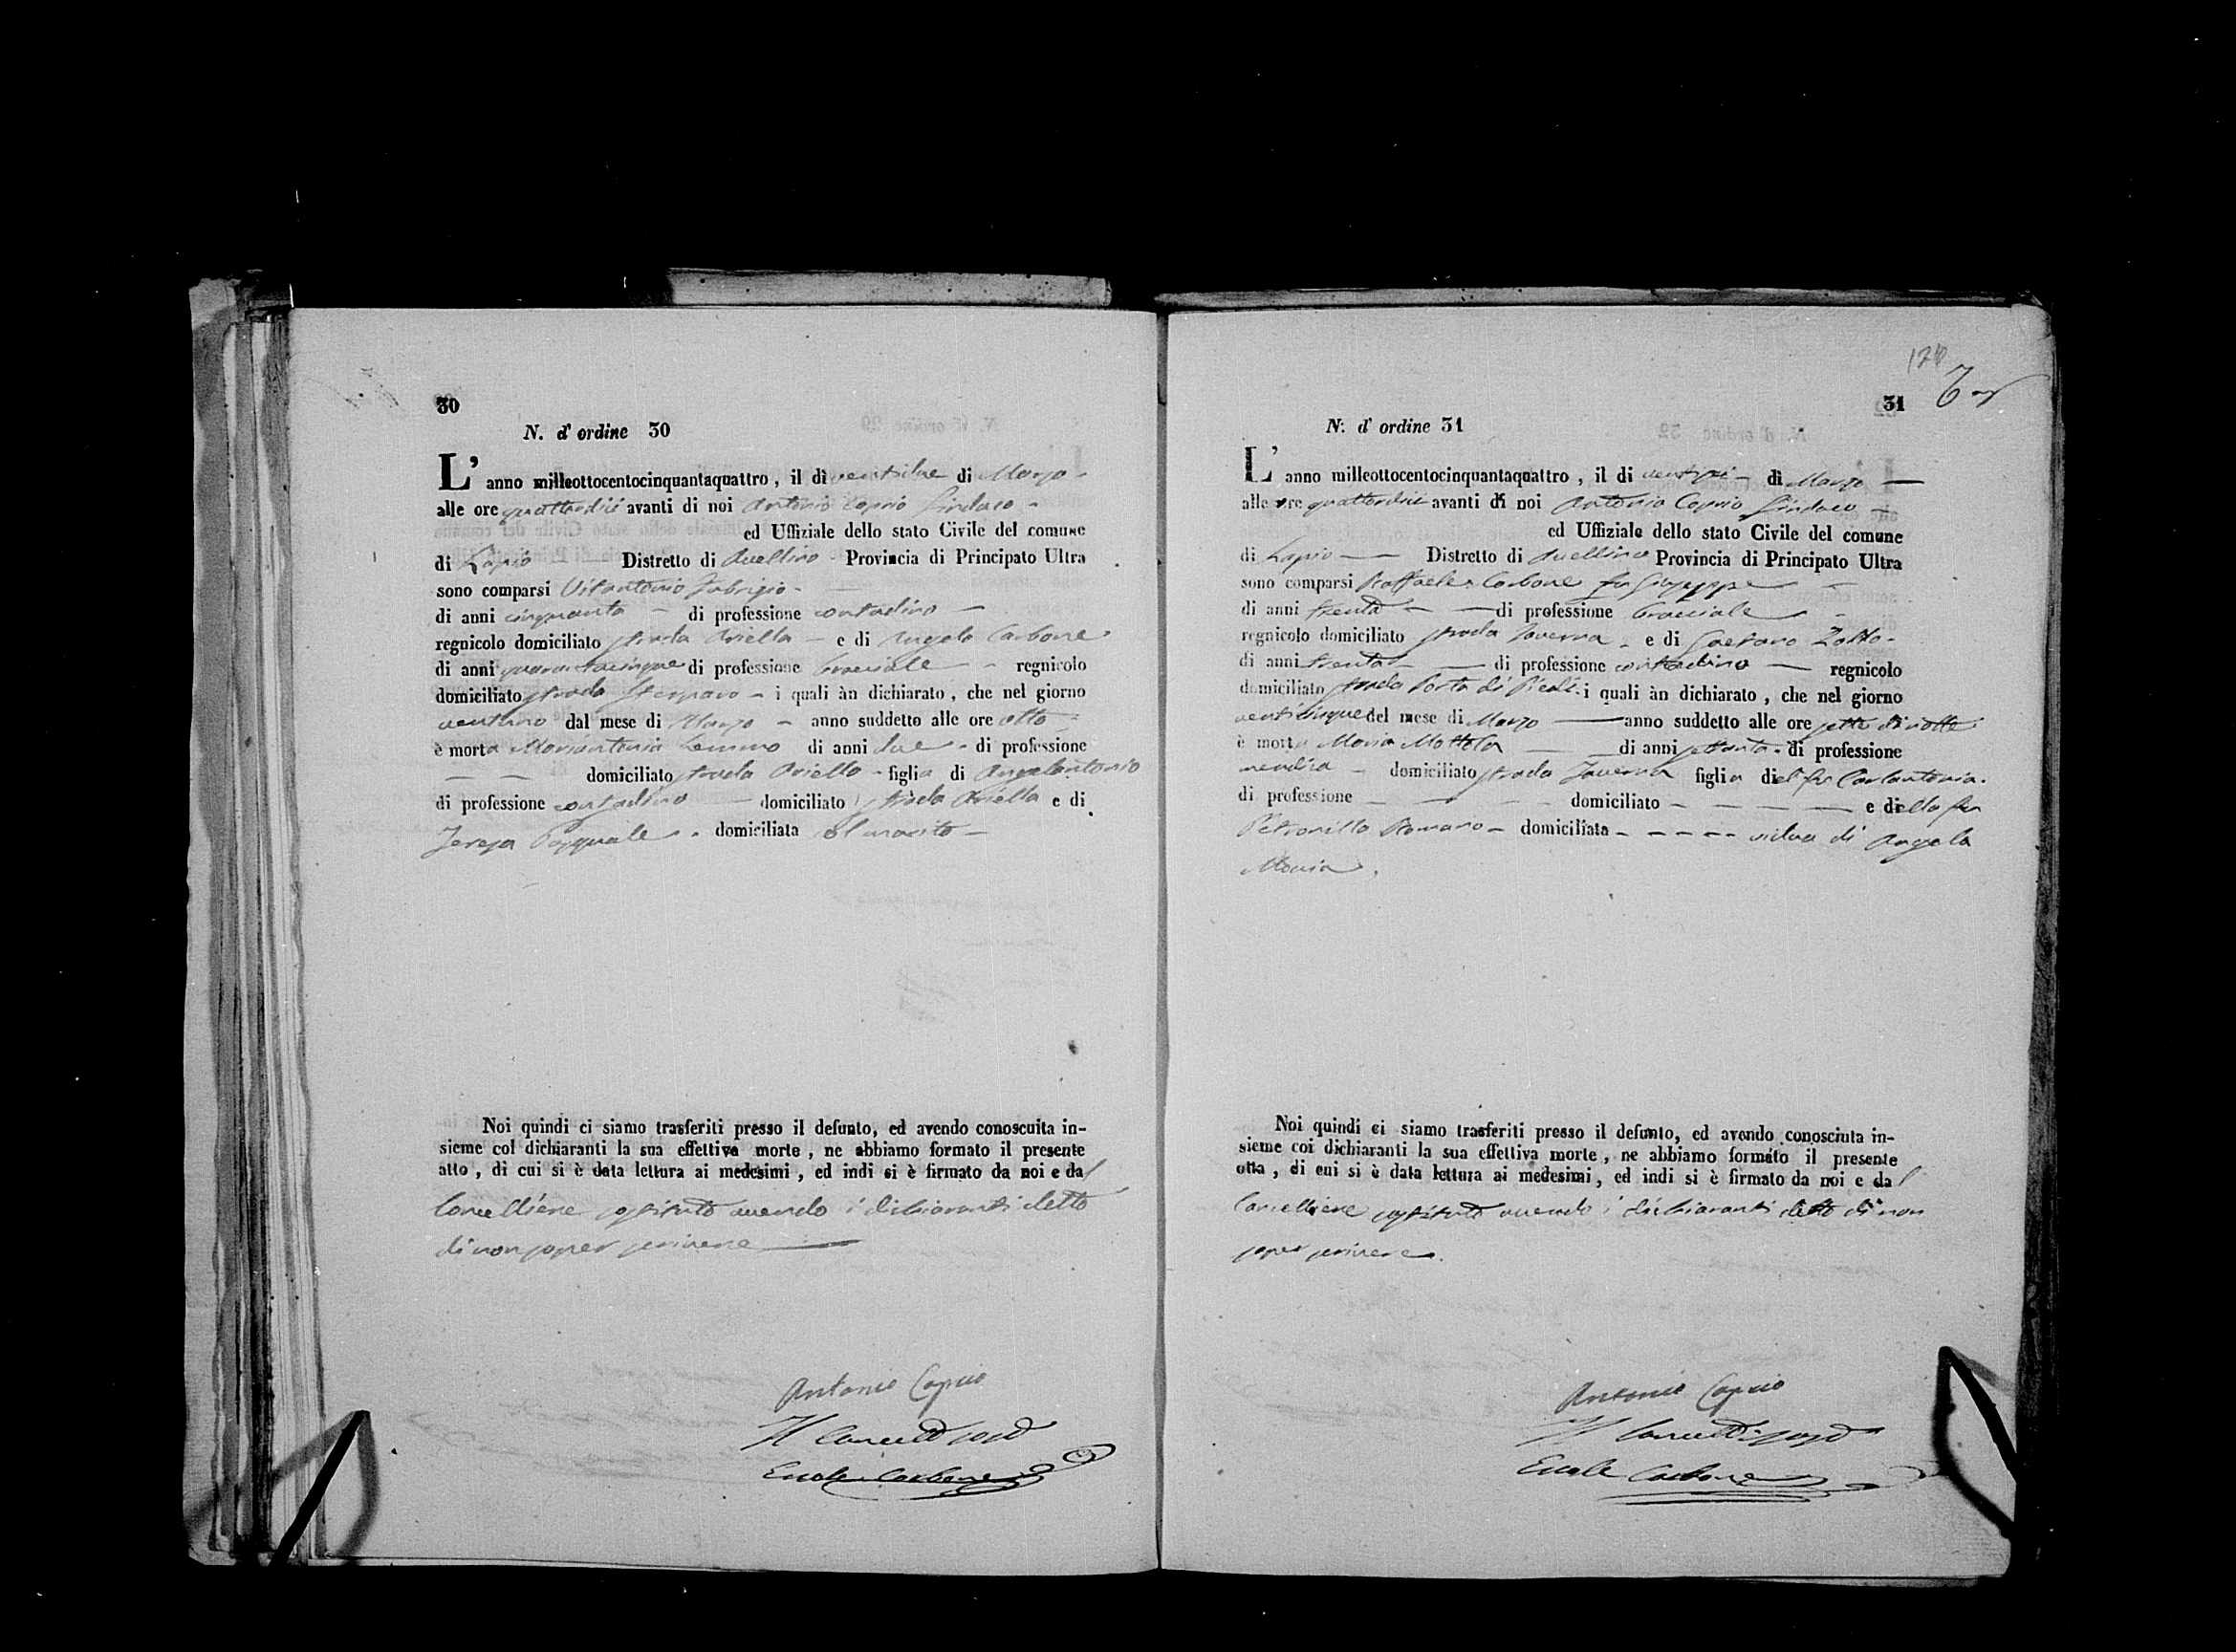 30
N. d' ordine 30
L' anno milleottocentocinquantaquattro , il dì ventidue di Marzo -
alle ore quattordici avanti di noi Antonio Caprio Sindaco -
ed Uffiziale dello stato Civile del comune
di Lapio Distretto di Avellino - Provincia di Principato Ultra
sono comparsi Vitantonio Fabrizio -
di anni cinquanta - di professione contadino -
regnicolo domiciliato strada Ariella - e di Angelo Carbone
di anni quarantacinque di professione bracciale - regnicolo
domiciliato strada - i quali àn dichiarato , che nel giorno
ventuno dal mese di Marzo - anno suddetto alle ore otto
è morta Mariantonia Lemmo di anni due - di professione
— — domiciliato strada Ariella - figlia di Angelantonio
di professione contadino — domiciliato strada Ariella e di
Teresa Pasquale - domiciliata col marito -
Noi quindi ci siamo trasferiti presso il defunto, ed avendo conoscuita in-
sieme col dichiaranti la sua effettiva morte , ne abbiamo formato il presente
atto , di cui si è data lettura ai medesimi , ed indi si è firmato da noi e dal
Cancelliere sostituto avendo i dichiaranti detto
di non saper scrivere
Antonio Caprio
Il Cancell. sost.
Ercole Carbone
31
N. d' ordine 31
L' anno milleottocentocinquantaquattro , il di ventisei - di Marzo —
alle ore quattordici avanti di noi Antonio Caprio Sindaco -
ed Uffiziale dello stato Civile del comune
di Lapio — Distretto di Avellino Provincia di Principato Ultra
sono comparsi Raffaele Carbone fu Giuseppe
di anni trenta - — di professione bracciale
regnicolo domiciliato strada Taverna - e di Gaetano Zollo -
di anni trenta - — di professione contadino — regnicolo
domiciliato strada Porta di i quali àn dichiarato , che nel giorno
venticinque del mese di Marzo — anno suddetto alle ore sette di notte
è morta Maria Mottola — di anni settanta - di professione
mendica - domiciliato strada Taverna figlia del fu Carlantonio.
di professione — — - domiciliato - — — — e della fu
Petronilla Romano - domiciliata - - - - - vidua di Angelo
Noi quindi ci siamo trasferiti presso il defunto, ed avendo conosciuta in-
sieme coi dichiaranti la sua effettiva morte , ne abbiamo formato il presente
otta , di cui si è data lettura ai medesimi , ed indi si è firmato da noi e dal
Cancelliere sostituto avendo i dichiaranti detto di non
saper scrivere.
Antonio Caprio
Il Cancell. sost.
Ercole Carbone